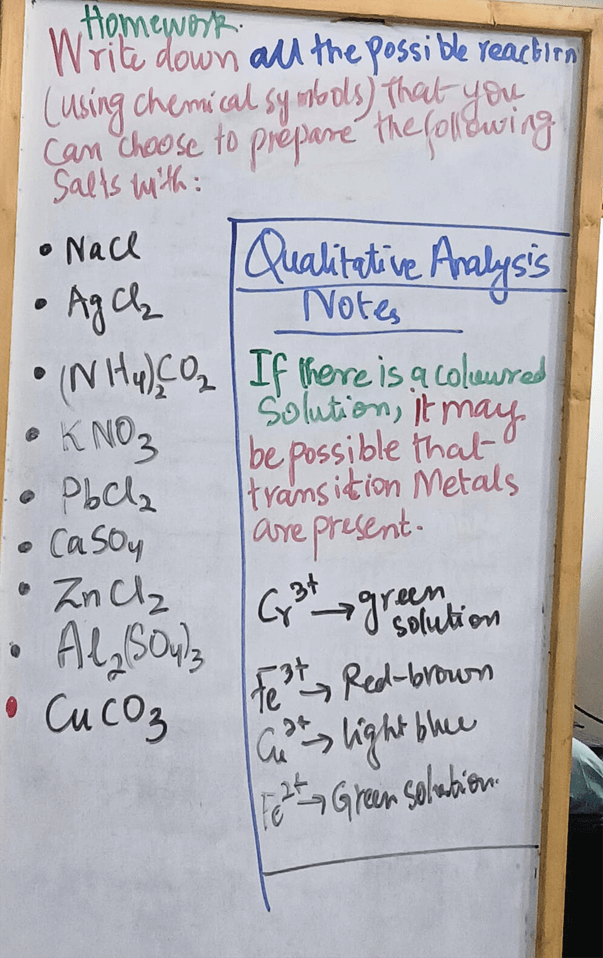 Homework.
Write down all the possible reaction
(using chemical symbols) that you
can choose to prepare the following
Salts with:
• NaCl
• AgCl₂
• (NH₄)₂CO₂
• KNO₃
• PbCl₂
• CaSO₄
• ZnCl₂
• Al₂(SO₄)₃
• CuCO₃
Qualitative Analysis
Notes
If there is a coloured
solution, it may
be possible that
transition Metals
are present.
Cr³⁺ → green
solution
Fe³⁺ → Red-brown
Cu²⁺ → light blue
Fe²⁺ → Green solution.